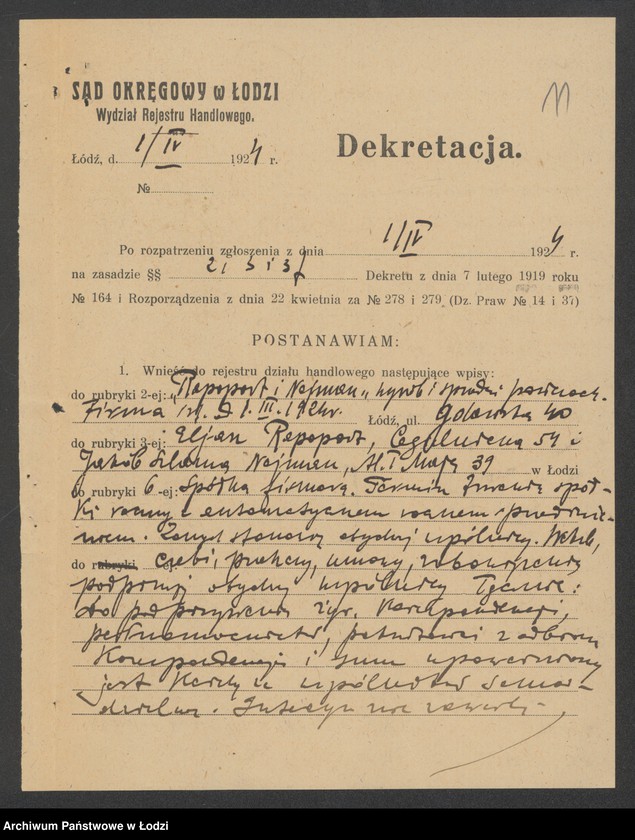 SĄD OKRĘGOWY w ŁODZI
Wydział Rejestru Handlowego.
11
Łódź, d. 1/IV 1924 r.
Dekretacja.
№
Po rozpatrzeniu zgłoszenia z dnia 1/IV 1924 r.
na zasadzie §§ 2 i 3 i 3 Dekretu z dnia 7 lutego 1919 roku
№ 164 i Rozporządzenia z dnia 22 kwietnia za № 278 i 279 (Dz. Praw № 14 i 37)
POSTANAWIAM:
1. Wnieść do rejestru działu handlowego następujące wpisy:
do rubryki 2-ej: „Rapoport i Najman" wyrób i sprzedaż pończoch.
Firma ist. od 1.III.1924r. Łódź, ul. Gdańska 40
do rubryki 3-ej: Eljasz Rapoport, Cegielniana 54 i
Jakób Szlama Najman, 1 Maja 39 w Łodzi
do rubryki 6-ej: Spółka firmowa. Termin trwania spół-
ki roczny z automatycznem
Zarząd stanowią obydwaj wspólnicy. Weksle,
do rubryki ej: czeki, umowy, zobowiązania
podpisują obydwaj wspólnicy łącznie:
do podpisywania korespondencji,
z odbioru
korespondencji i sum upoważniony
jest każdy ze wspólników samo-
dzielnie. Intercyzy nie zawarli.
Archiwum Państwowe w Łodzi